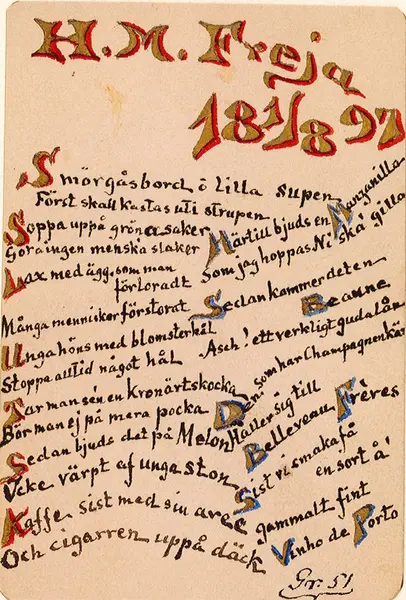 H. M. Freja
18 1/8 97
Smörgåsbord å lilla supen
Först skall kastas uti strupen
Soppa uppå gröna saker
Göra ingen menska slaker
Lax med ägg, som man
förloradt
Många mennisker förstorat
Unga höns med blomsterkål
Stoppa alltid något hål
Tar man se'n en kronärtskocka
Bör man ej på mera pocka
Sedan bjuds det på Melon
Icke värpt af unga ston
Kaffe sist med sin avec
Och cigarren uppå däck
Härtill bjuds en Manzanilla
Som jag hoppas Ni ska gilla
Sedan kommer deten
Beaune
Asch! ett verkligt gudalån
Den som har Champagnen kär
Håller sig till
Belleveau Frères
Sist vi smaka få
en sort å'
gammalt fint
Vinho de Porto
Gr. 51